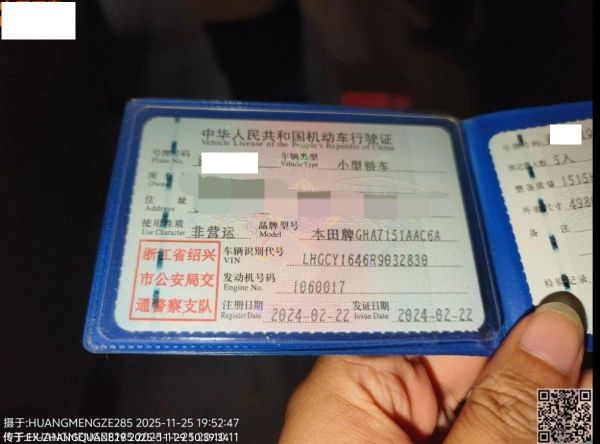 中华人民共和国机动车行驶证
Vehicle License of the People's Republic of China
号牌号码
Plate No.
车辆类型
Vehicle Type
小型轿车
所
Owner
住 址
Address
使用性质
Use Character
非营运
品牌型号
Model
本田牌GHA7151AAC6A
浙江省绍兴
市公安局交
通警察支队
车辆识别代号
VIN
LHGCY1646R9032830
发动机号码
Engine No.
1060017
注册日期
Register Date
2024-02-22
发证日期
Issue Date
2024-02-22
号牌号码
核定载人数 5人
整备质量 1515
外廓尺寸 498
备 注
检验记录
摄于:HUANGMENGZE285 2025-11-25 19:52:47
传于: